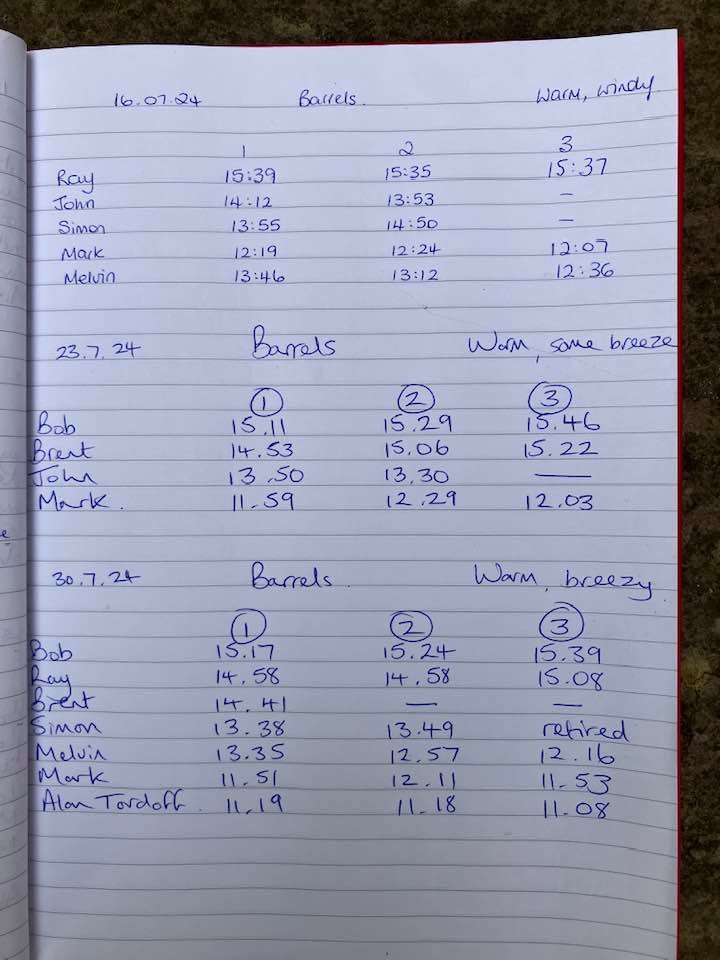 16.07.24 Barrels. Warm, windy
1 2 3
Ray 15:39 15:35 15:37
John 14:12 13:53 –
Simon 13:55 14:50 –
Mark 12:19 12:24 12:07
Melvin 13:46 13:12 12:36
23.7.24 Barrels Warm, some breeze
1 2 3
Bob 15.11 15.29 15.46
Brent 14.53 15.06 15.22
John 13.50 13.30 —
Mark. 11.59 12.29 12.03
30.7.24 Barrels. Warm, breezy
1 2 3
Bob 15.17 15.24 15.39
Ray 14.58 14.58 15.08
Brent 14.41 — —
Simon 13.38 13.49 retired
Melvin 13.35 12.57 12.16
Mark 11.51 12.11 11.53
Alan Tordoff. 11.19 11.18 11.08